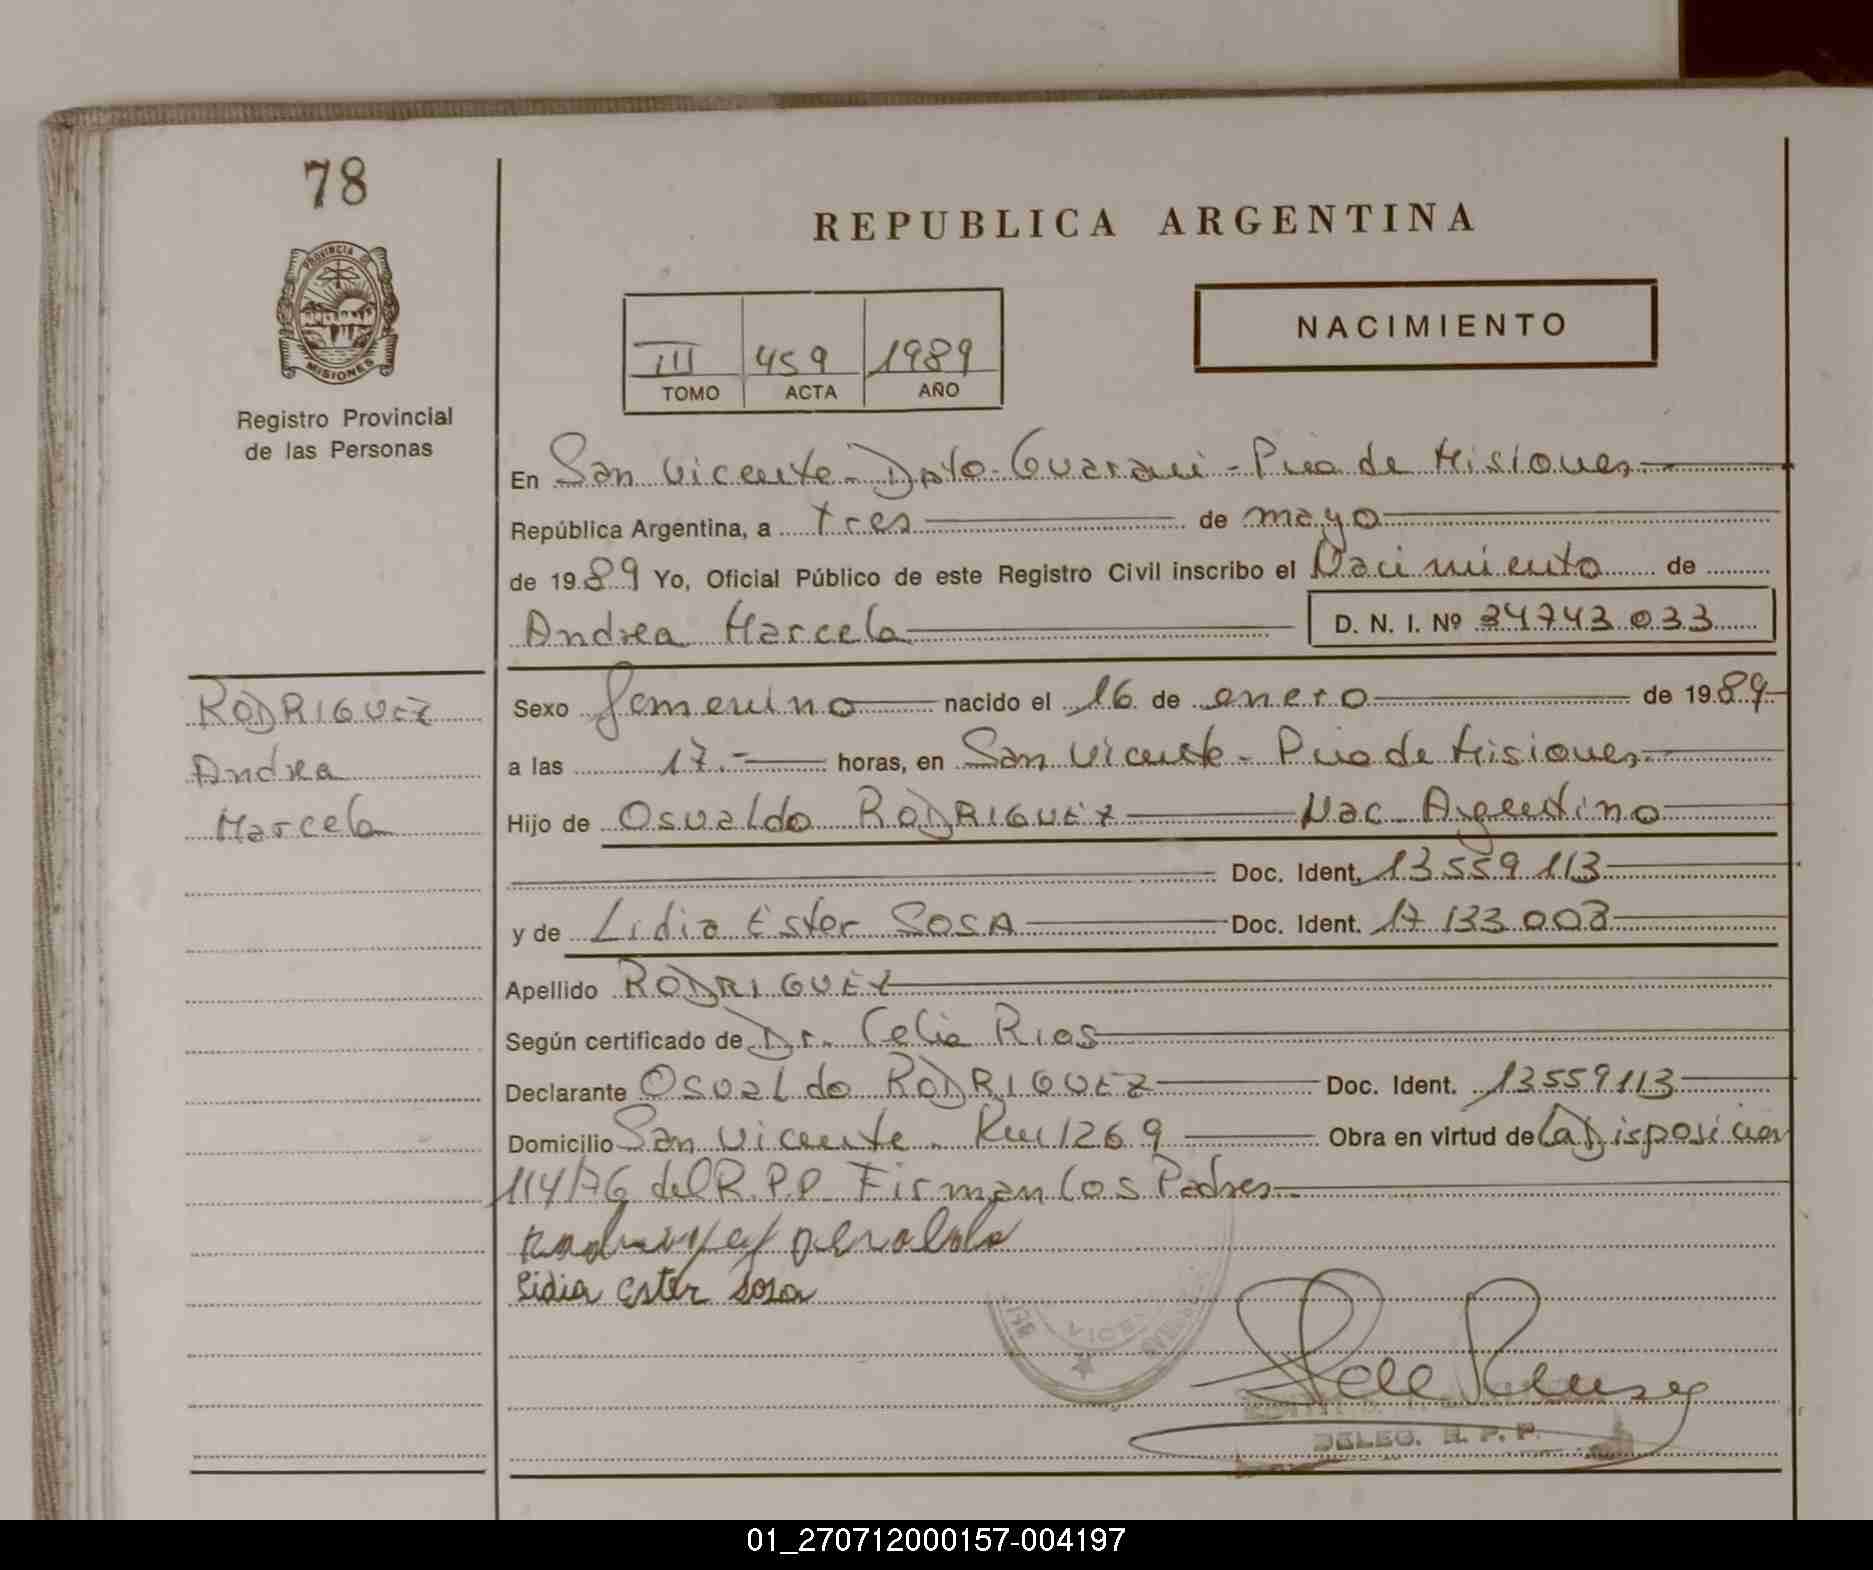 78
PROVINCIA DE
MISIONES
Registro Provincial
de las Personas
REPUBLICA ARGENTINA
III 459 1989
TOMO ACTA AÑO
NACIMIENTO
En San Vicente - Dpto. Guarani - Pcia de Misiones
República Argentina, a tres de mayo
de 1989 Yo, Oficial Público de este Registro Civil inscribo el Nacimiento de
Andrea Marcela D. N. I. Nº 34743033
RODRIGUEZ
Andrea
Marcela
Sexo femenino nacido el 16 de enero de 1989
a las 17.- horas, en San Vicente - Pcia de Misiones
Hijo de Osvaldo RODRIGUEZ Nac. Argentino
Doc. Ident. 13559113
y de Lidia Ester SOSA Doc. Ident. 17133008
Apellido RODRIGUEZ
Según certificado de Dr. Celia Rios
Declarante Osvaldo RODRIGUEZ Doc. Ident. 13559113
Domicilio San Vicente - Km 1269 Obra en virtud de la Disposicion
114/76 del R.P.P. Firman los Padres
Lidia Ester Sosa
DELEG. R. P. P.
01_270712000157-004197